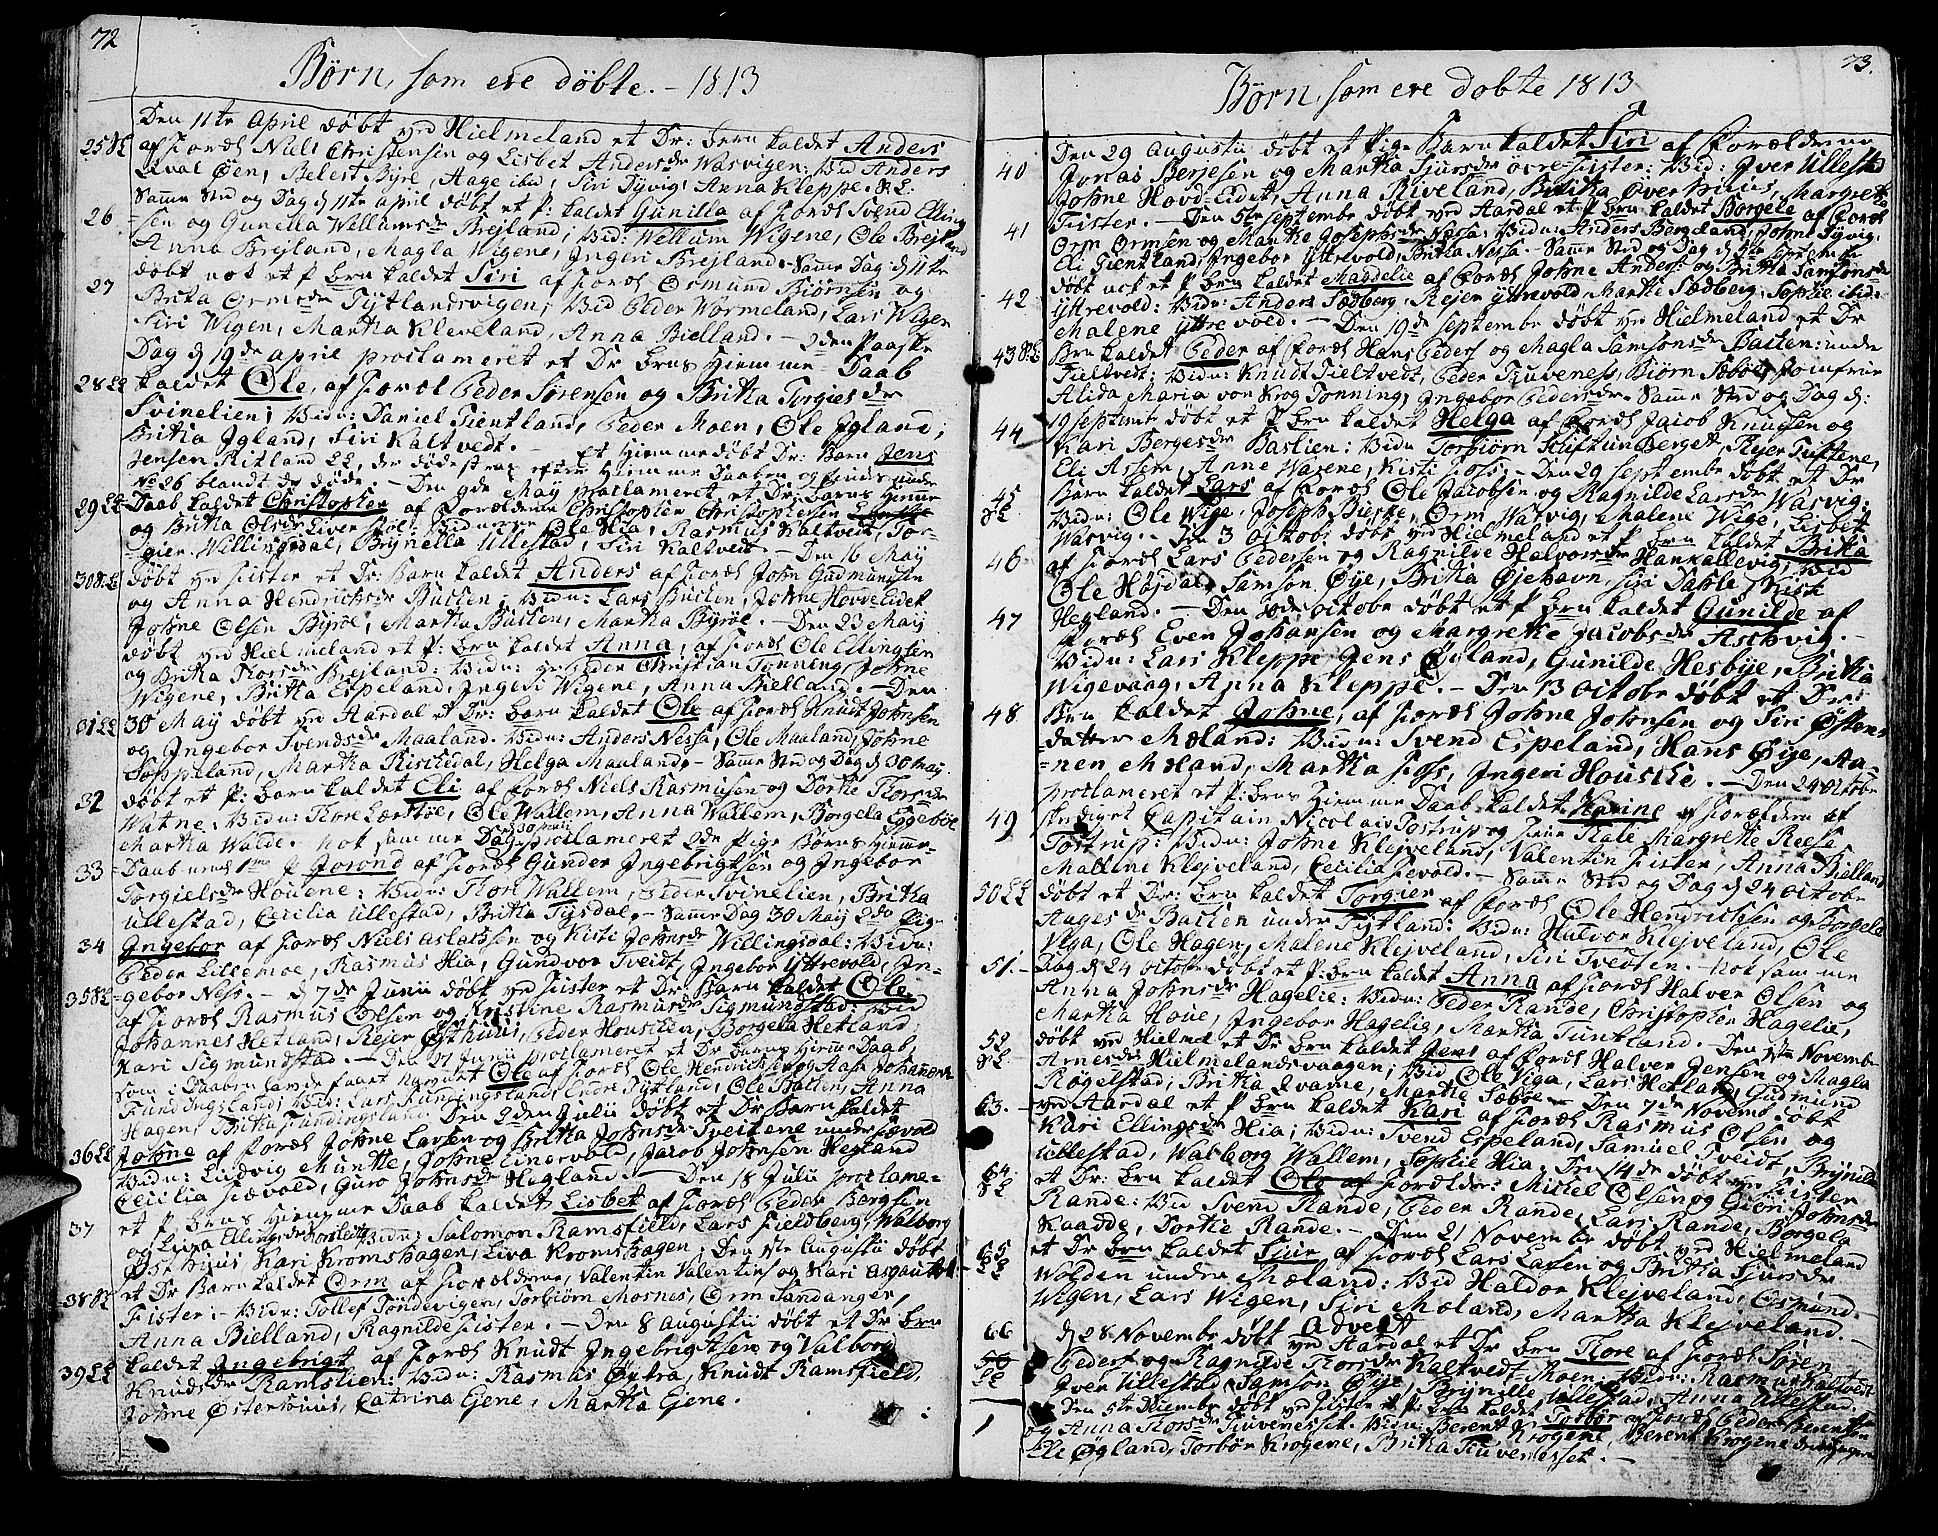 72
Børn, som ere døbte. - 1813
Den 11te April døbt ved Hielmeland et Dr: Barn kaldet Anders
25 af Foræl Niels Christensen og Lisbet Andersdr Wasvigen: Vid Anders
Øen, Belest Byre, Aage ibid, Siri Tyvig, Anna Kleppe.
Samme Sted og Dag d 11te April døbt et P: kaldet Gunilla af Foræl Svend Elling
26 sen og Gunella Wellumsdr Brejland; Vid: Wellum Wigene, Ole Brejland
Anna Brejland, Magla Wigene, Ingeri Brejland. Samme Dag d 11te
døbt nok et P brn kaldet Siri af Foræl Osmund Biørnsen og
27 Brita Ormsdr Tytlandsvigen; Vid Peder Wormeland, Lars Wigen
Siri Wigen, Martha Kleveland, Anna Bielland. - 2den Paaske
Dag d 19de April proclameret et Dr brns Hiemme-Daab
28 kaldet Ole, af Foræl Peder Sørensen og Britha Torgiesdr
Svinelien; Vidu: Daniel Tientland, Peder Moen, Ole Igland;
Britha Igland, Siri Kaltvedt. - Et Hiemmedøbt Dr: Barn Jens
Jensen Ritland, der døde strax efter Hiemme Daaben og findes under
No 26 blandt de døde. - Den 9de Maij proclameret et Dr: Barns Hiemme
29 Daab kaldet Christopher af Forældrene Christopher Christophersen
og Britha Olsdr Vidu: Ole Hia, Rasmus Kaltvedt, Tor-
gier Willingsdal, Brynella Ullestad, Siri Kaltvedt. - Den 16 Maij
30 døbt ved Fister et Dr: Barn kaldet Anders af Foræl John Gudmundsen
og Anna Hendrichsdr Busten; Vidu: Lars Busten, Johne Hovde Eidet
Johne Olsen Byrøe, Martha Busten, Martha Byrøe. - Den 23 Maij
døbt ved Hielmeland et P: brn kaldet Anna, af Foræl Ole Ellingsen
og Britha Thorsdr Brejland: Vidu: Peder Christian Tønning, Johne
Wigene, Britha Espeland, Ingeri Wigene, Anna Bielland. - Den
31 30 Maij døbt ved Aardal et Dr: barn kaldet Ole af Foræl Knudt Johnsen
og Ingebor Svendsdr Maaland. Vidu: Anders Nessa, Ole Maaland, Johne
Soppeland, Martha Riskedal, Helga Mauland. - Samme Sted og Dag d 30 Maij
32 døbt et P: barn kaldet Eli af Foræl Niels Rasmusen og Dorthe Thorsdr
Watne. Vidu: Thore Lærstøe, Ole Wallem, Anna Wallem, Borgela Eggebøe
Martha Walde. Nok samme Dag proclameret 2de Pige Børns Hiemme-
33 Daab nemlig 1mo P Jorond af Foræl Gunder Ingebrigtsen og Ingebor
Torgielsdr Houene: Vidu: Thore Wallem, Peder Svinelien, Britha
Ullestad, Cecilia Ullestad, Britha Tysdal. - Samme Dag 30 Maij 2do Pige
34 Ingebor af Foræl Niels Aslaksen og Kisti Johnsdr Willingsdal: Vidu:
Peder Lillemoe, Rasmus Hia, Gundvor Tveidt, Ingebor Yttrevold, In-
35 gebor Ness. - d 7de Junii døbt ved Fister et Dr: Barn kaldet Ole
af Foræl Rasmus Olsen og Kristine Rasmusdr Sigmundstad: Vid
Johannes Hetland, Rejer Østhuus, Peder Houstien, Borgela Hetland,
Kari Sigmundstad. - Den 27 Junii proclameret et Dr Barns Hiemme-Daab,
som i Daaben havde faaet Navnet Ole af Foræl Ole Hendrichsen og Aasa Johannesdr
Fundingsland; Vidu: Lars Fundingsland, Endre Tytland, Ole Batten, Anna
Hagen, Britha Fundingsland. Den 2den Julii døbt et Dr Barn kaldet
36 Johne af Foræl Johne Larsen og Britha Johnsdr Sveitene under Sævold
Vidu: Ludvig Munthe, Johne Einervold, Jacob Johnsen Hegland
Cecilia Sævold, Guro Johnsdr Higland. - Den 18 Julii proclame-
et P: brns Hiemme Daab kaldet Lisbet af Foræl Peder Børgsen
37 og Liva Ellingsdr Vidu: Salomon Ramsfield, Lars Fieldberg, Walborg
Østhuus, Kari Kromshagen, Liva Kromshagen; Den 1ste Augustii døbt
et Dr Barn kaldet Orm af Forældrene, Valentin Valentinsen og Kari
38 Fister. - Vidu: Tollef Tøndevigen, Torbiørn Mosnes, Orm Sandanger,
Anna Bielland, Ragnilde Fister. - Den 8 Augustii døbt et Dr brn
39 kaldet Ingebrigt af Foræl Knudt Ingebrigtsen og Valborg
Knudsdr Ramstien: Vidu: Rasmus Øxtra, Knudt Ramsfield,
Johne Østerhuus, Catrina Gjene, Martha Gjene.
73.
Børn, som ere døbte 1813
Den 29 Augustii døbt et Pige Barn kaldet Siri af Forældrene
40 Jonas Berjesen og Martha Sjursdr øvre-Fister: Vid: Iver Ullestad
Johne Hovd-Eidet, Anna Biveland, Britha Øverhuus, Margretha
Fister. - Den 5te Septembr døbt ved Aardal et P. brn kaldet Borgele af Foræl
41 Orm Ormsen og Martha Josephsdr Nessa: Vidu: Anders Bergeland, Johne Tyvig,
Eli Tientland, Ingebor Yttrevold, Britha Nessa. - Samme Sted og Dag d 5te Septembr
døbt nok et P brn kaldet Magdelie af Foræl Johne Anders og Britha Samsonsdr
42 Yttrevold: Vidu: Anders Sædberg, Rejer Yttrevold, Marthe Sædberg, Sophie ibid:
Malene Yttrevold. - Den 19de Septembr døbt ved Hielmeland et Dr
43 brn kaldet Peder af Foræl Hans Peders og Magla Samsonsdr Basten: under
Tieltvedt: Vidu: Knudt Tieltvedt, Peder Tuveness, Biørn Sæbøe, Jomfrue
Alida Maria von Krog Tønning, Ingebor Pedersdr. Samme Sted og Dag d:
44 19 Septembr døbt et P brn kaldet Helga af Foræl Jacob Knudsen og
Kari Bergesdr Bastien: Vidu Torbiørn Berge, Rejer Tuftene,
Eli Assem, Anne Wasene, Kisti Foss. - Den 29 Septembr døbt et Dr
45 Barn kaldet Lars af Foræl Ole Jacobsen og Ragnilde Larsdr Wasvig,
Vidu: Ole Wige, Joseph Bieske, Orm Watvig, Malene Wige, Lisbet
Wasvig. - Den 3 Octobr døbt ved Hielmeland et P brn kaldet Britha
46 af Foræl Lars Pedersen og Ragnilde Halvorsdr Hankallevig; Vid
Ole Højdal, Samson Øye, Britha Øjehavn, Siri Dahle, Kisti
Hegland. - Den 10de Octobr døbt et P brn kaldet Gunilde af
47 Foræl Even Johansen og Margrethe Jacobsdr Aschvig. -
Vidu: Lars Kleppe, Jens Øyland, Gunilde Hesbye, Britha
Wigevaag, Anna Kleppe. - Den 13 Octobr døbt et Dr:
48 Brn kaldet Johne, af Foræl Johne Johnsen og Siri Østens
datter Mæland: Vidu: Svend Espeland, Hans Øye, Aa-
-nen Mæland, Martha Foss, Ingeri Houskie. - Den 24 Octobr
proclameret et P: brns Hiemme Daab kaldet Karine af Forældrene
49 Capitain Nicolai Tostrup og Frue Kale Margrethe Reese
Tostrup: Vidu: Johne Klejveland, Valentin Fister, Anna Bielland
Mallene Klejveland, Cecilia Sevold. - Samme Sted og Dag d 24 Octobr
50 døbt et Dr: brn kaldet Torgier af Foræl Ole Hendrichsen og Borgela
Aagesdr Batten under Tytland: Vidu: Halvor Klejveland, Ole
Viga, Ole Hagen, Malene Klejveland, Siri Tvedten. - Nok samme
51. Dag d 24 Octobr døbt et P: brn kaldet Anna af Foræl Halver Olsen og
Anna Johnsdr Hagelie: Vidu: Peder Rande, Christopher Hagelie,
Martha Houe, Ingebor Hagelie, Martha Tuntland. - Den 1ste Novembr
52 døbt ved Hielmel et Dr brn kaldet Jens af Foræl Halver Jensen og Magla
Arnesdr Hielmelandsvaagen; Vid Ole Viga, Lars Hetland, Gudmund
Røgelstad, Britha Qvame, Martha Sæbøe. - Den 7de Novemb døbt
53. ved Aardal et P brn kaldet Kari af Foræl Rasmus Olsen og
Kari Ellingsdr Hia; Vidu: Svend Espeland, Samuel Tveidt, Brynille
Ullestad, Walborg Wallem, Sophie Hia. Den 14de døbt ved Fister
54. et Dr: brn kaldet Ole af Forældr: Mickel Olsen og Giøri Johnsdr
Rande: Vid Svend Rande, Peder Rande, Lars Rande, Borgela
Kaadde, Dortie Rande. - Den 21 Novembr døbt ved Hielmeland
55 et Dr brn kaldet Siur af Foræl Lars Larsen og Britha Sjursdr
Wolden under Mæland: Vid Haldor Klejveland, Osmund
Wigen, Lars Wigen, Siri Mæland, Martha Klejveland. -
66 d 28 Novembr døbt Advent ved Aardal et Dr brn Thore af Foræl Søren
Peders og Ragnilde Thorsdr Kaltvedt-Moen: Vidu: Rasmus Kaltvedt
Iver Ullestad, Samson Øye, Brynille Ullestad, Anna Ullestad.
Den 5te Decembr døbt ved Fister et P: brn kaldet Torbør af Foræl Peder Berentsen
og Anna Thorsdr Tuvenesset. Vidu: Berent Krogene, Berent Krogene
Eli Øgland, Torbør Krogene, Britha Tuvenesset. -